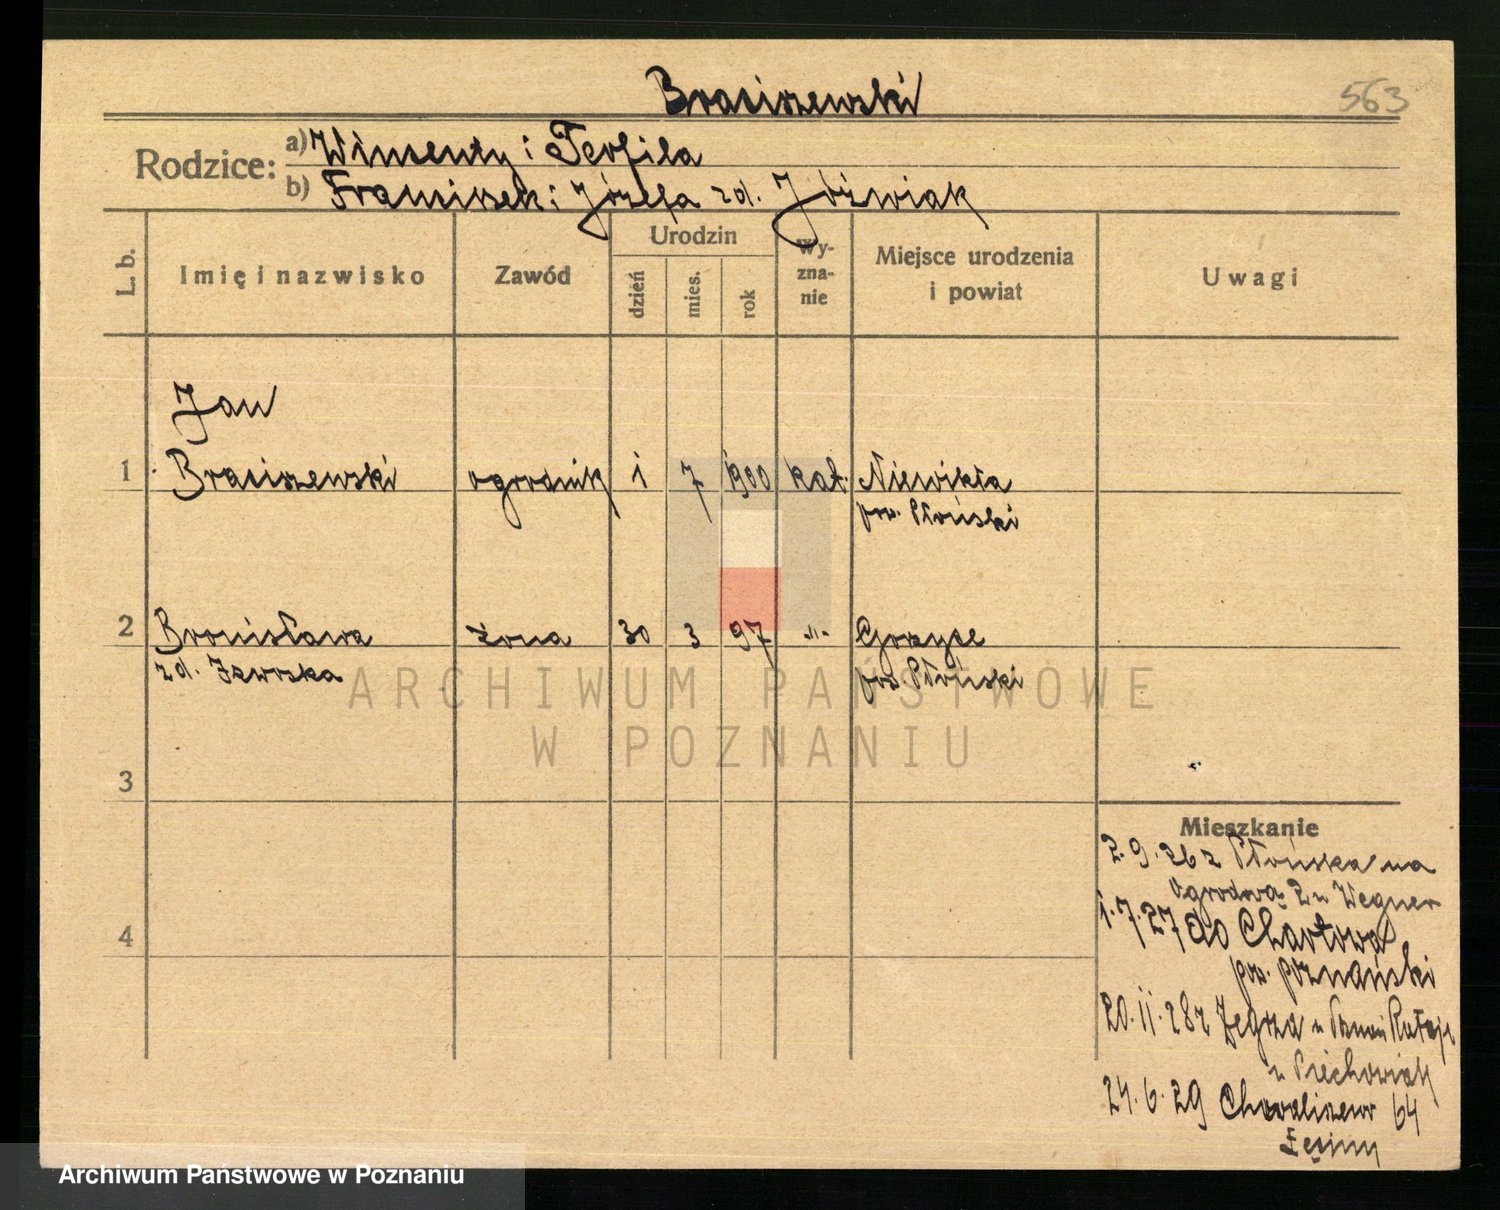 Braciszewski
563
Rodzice: a) Wincenty i Teofila
b) Franciszek i Józefa zd. Jóźwiak
L. b.
Imię i nazwisko
Zawód
Urodzin
dzień
mies.
rok
Wy-
zna-
nie
Miejsce urodzenia
i powiat
Uwagi
Jan
1 Braciszewski ogrodnik 1 7 1900 kat. Niewikła
pow. Płoński
2 Bronisława żona 30 3 97 -"- Gorzyce
zd. Jaworska pow. Płoński
ARCHIWUM PAŃSTWOWE
W POZNANIU
3
Mieszkanie
2.9.26 z Płońska na
Ogrodową 2 u Wegner
4
1.7.27 do Chartowa
pow. poznański
20.11.28 z Zegrza
u Piechowiak
24.6.29 Chwaliszewo 64
Archiwum Państwowe w Poznaniu